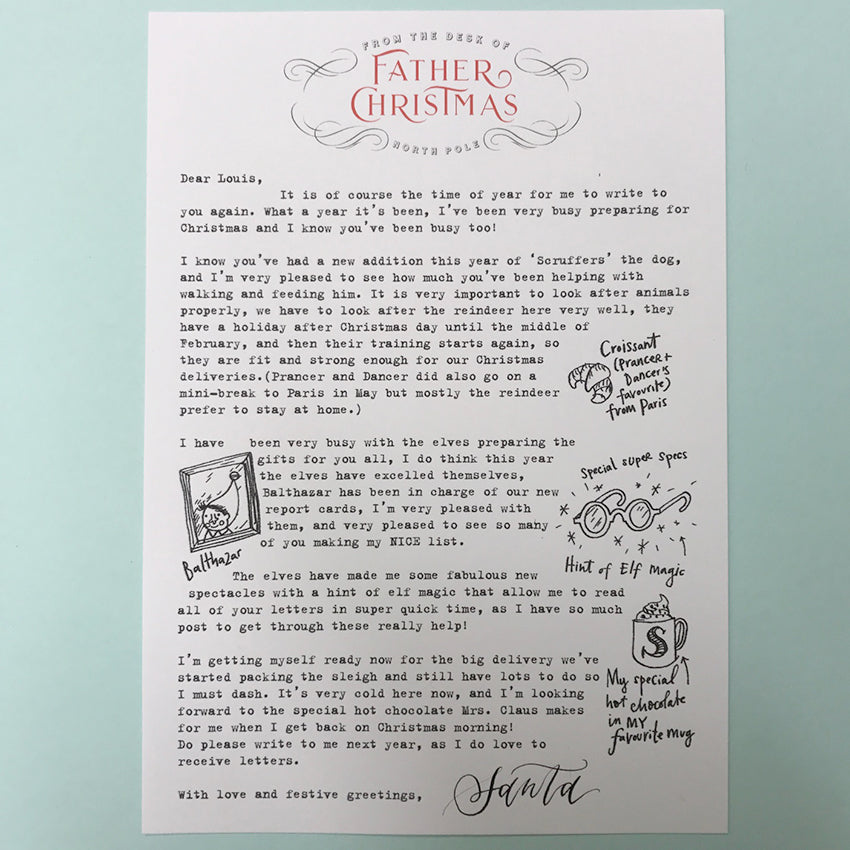 FROM THE DESK OF
FATHER
CHRISTMAS
NORTH POLE
Dear Louis,
It is of course the time of year for me to write to
you again. What a year it's been, I've been very busy preparing for
Christmas and I know you've been busy too!
I know you've had a new addition this year of 'Scruffers' the dog,
and I'm very pleased to see how much you've been helping with
walking and feeding him. It is very important to look after animals
properly, we have to look after the reindeer here very well, they
have a holiday after Christmas day until the middle of
February, and then their training starts again, so
they are fit and strong enough for our Christmas
deliveries.(Prancer and Dancer did also go on a
mini-break to Paris in May but mostly the reindeer
prefer to stay at home.)
Croissant
(Prancer +
Dancer's
favourite)
from Paris
I have been very busy with the elves preparing the
gifts for you all, I do think this year
the elves have excelled themselves,
Balthazar has been in charge of our new
report cards, I'm very pleased with
them, and very pleased to see so many
of you making my NICE list.
Balthazar
Special super specs
Hint of Elf Magic
The elves have made me some fabulous new
spectacles with a hint of elf magic that allow me to read
all of your letters in super quick time, as I have so much
post to get through these really help!
I'm getting myself ready now for the big delivery we've
started packing the sleigh and still have lots to do so
I must dash. It's very cold here now, and I'm looking
forward to the special hot chocolate Mrs. Claus makes
for me when I get back on Christmas morning!
Do please write to me next year, as I do love to
receive letters.
S
My special
hot chocolate
in MY
favourite mug
With love and festive greetings,
Santa